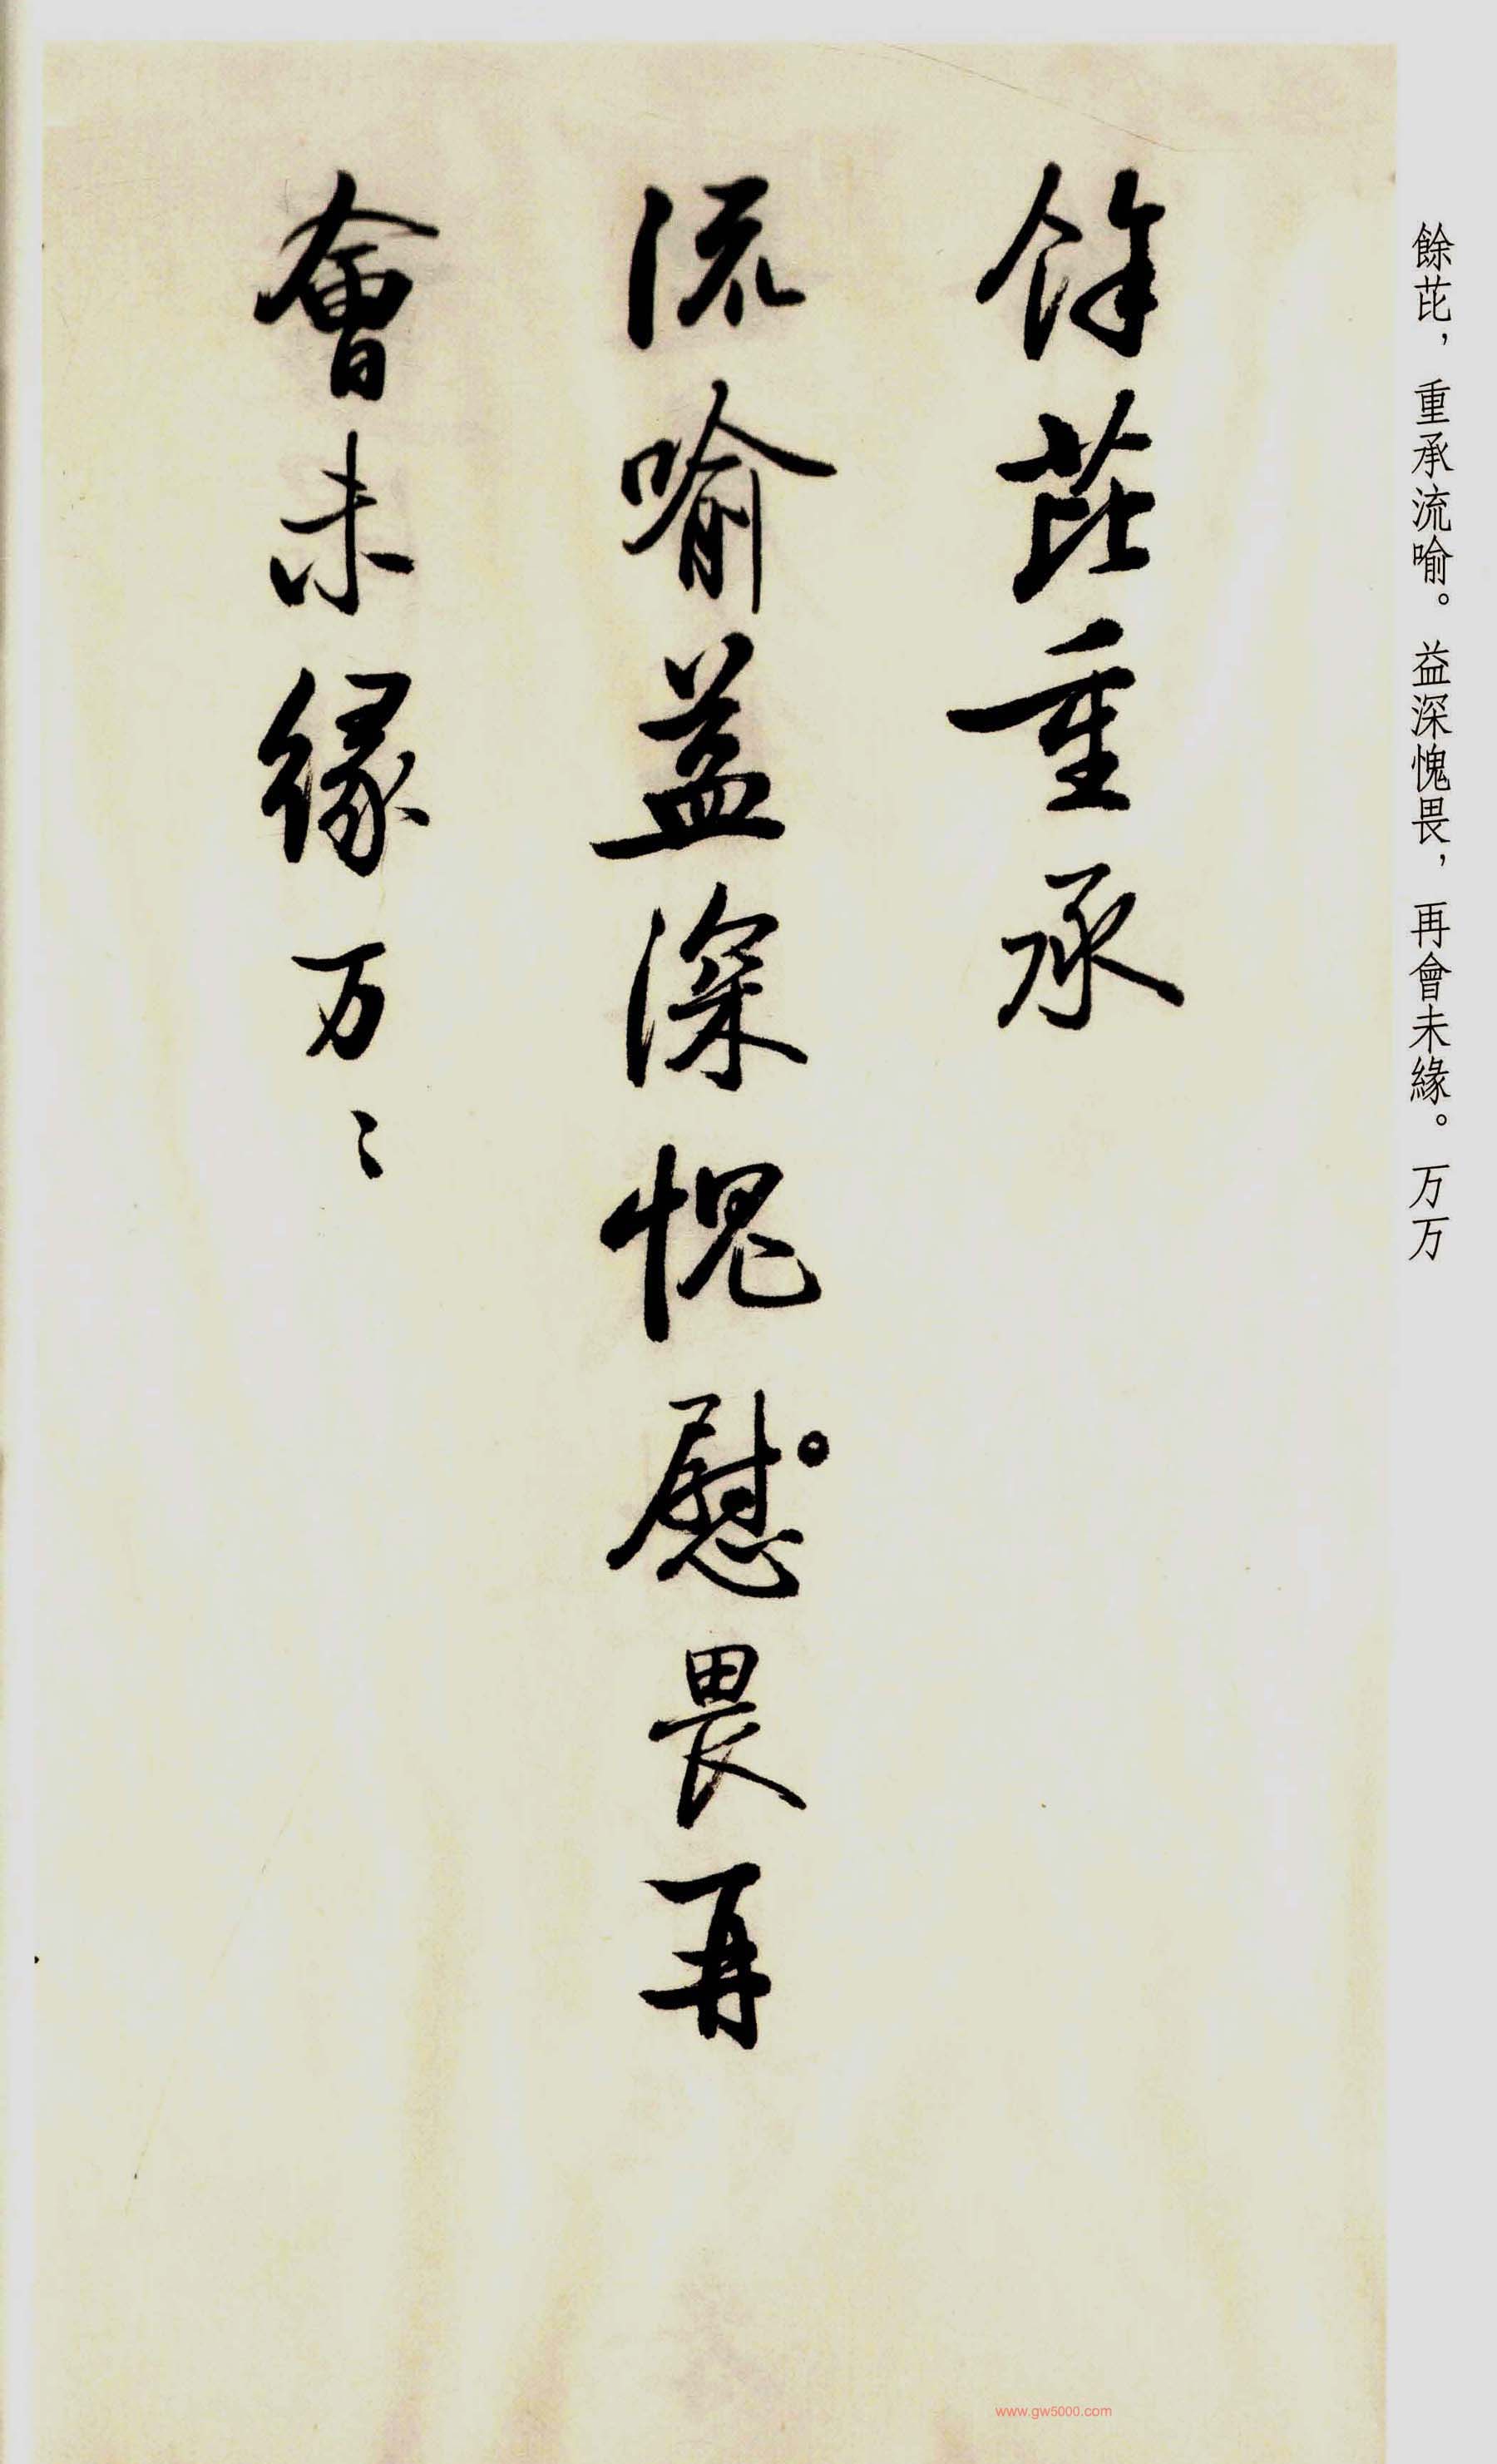 餘芘，重承流喻。益深愧畏，再會未緣。万万
餘芘重承
流喻益深愧慰。畏再
會未緣万〻
www.gw5000.com